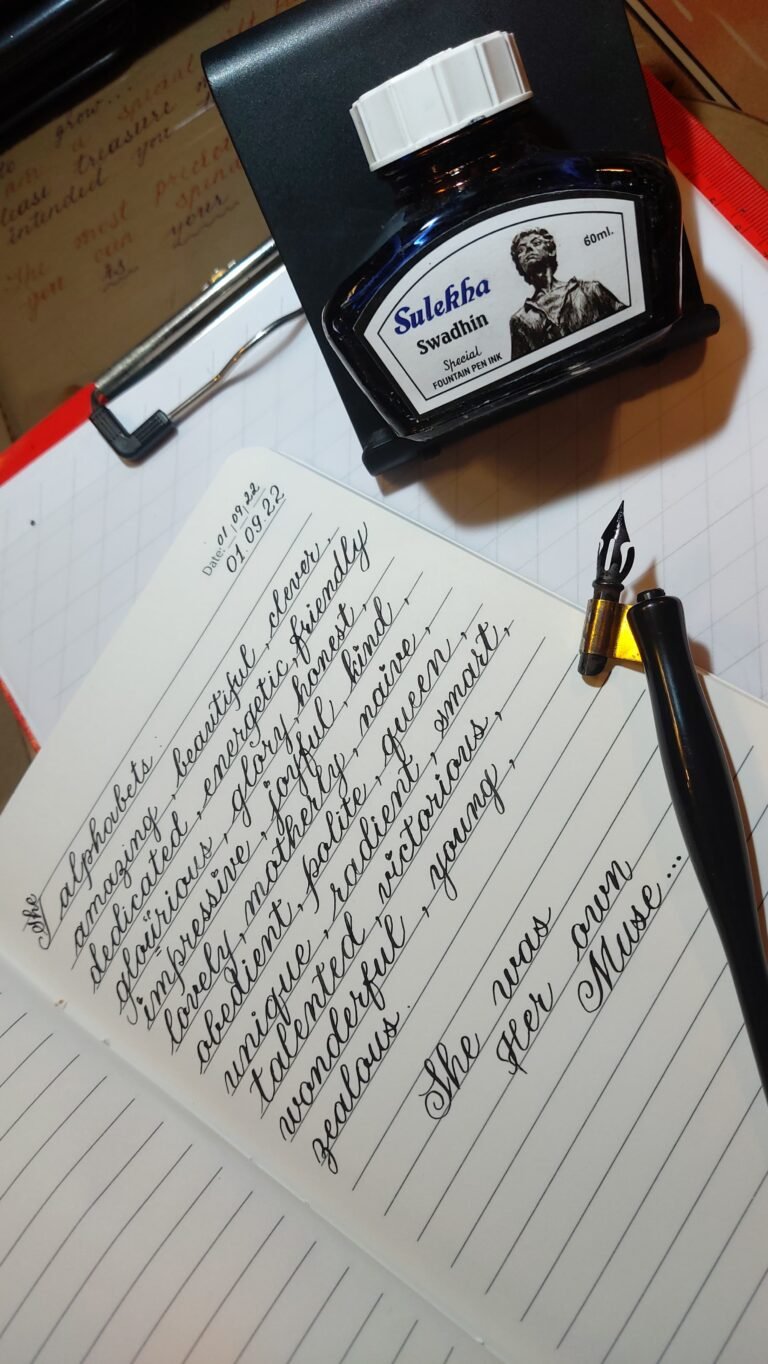 grow...
a special
treasure
intended you
The most precious
you can spend
is yours
Sulekha
Swadhin
Special
FOUNTAIN PEN INK
60ml.
Date: 01.09.22
01.09.22
The
alphabets.
amazing, beautiful, clever,
dedicated, energetic, friendly
glourious, glory, honest,
impressive, joyful, kind,
lovely, motherly, naive,
obedient, polite, queen,
unique, radient, smart,
talented, victorious,
wonderful, young,
zealous.
She was
Her own
Muse...